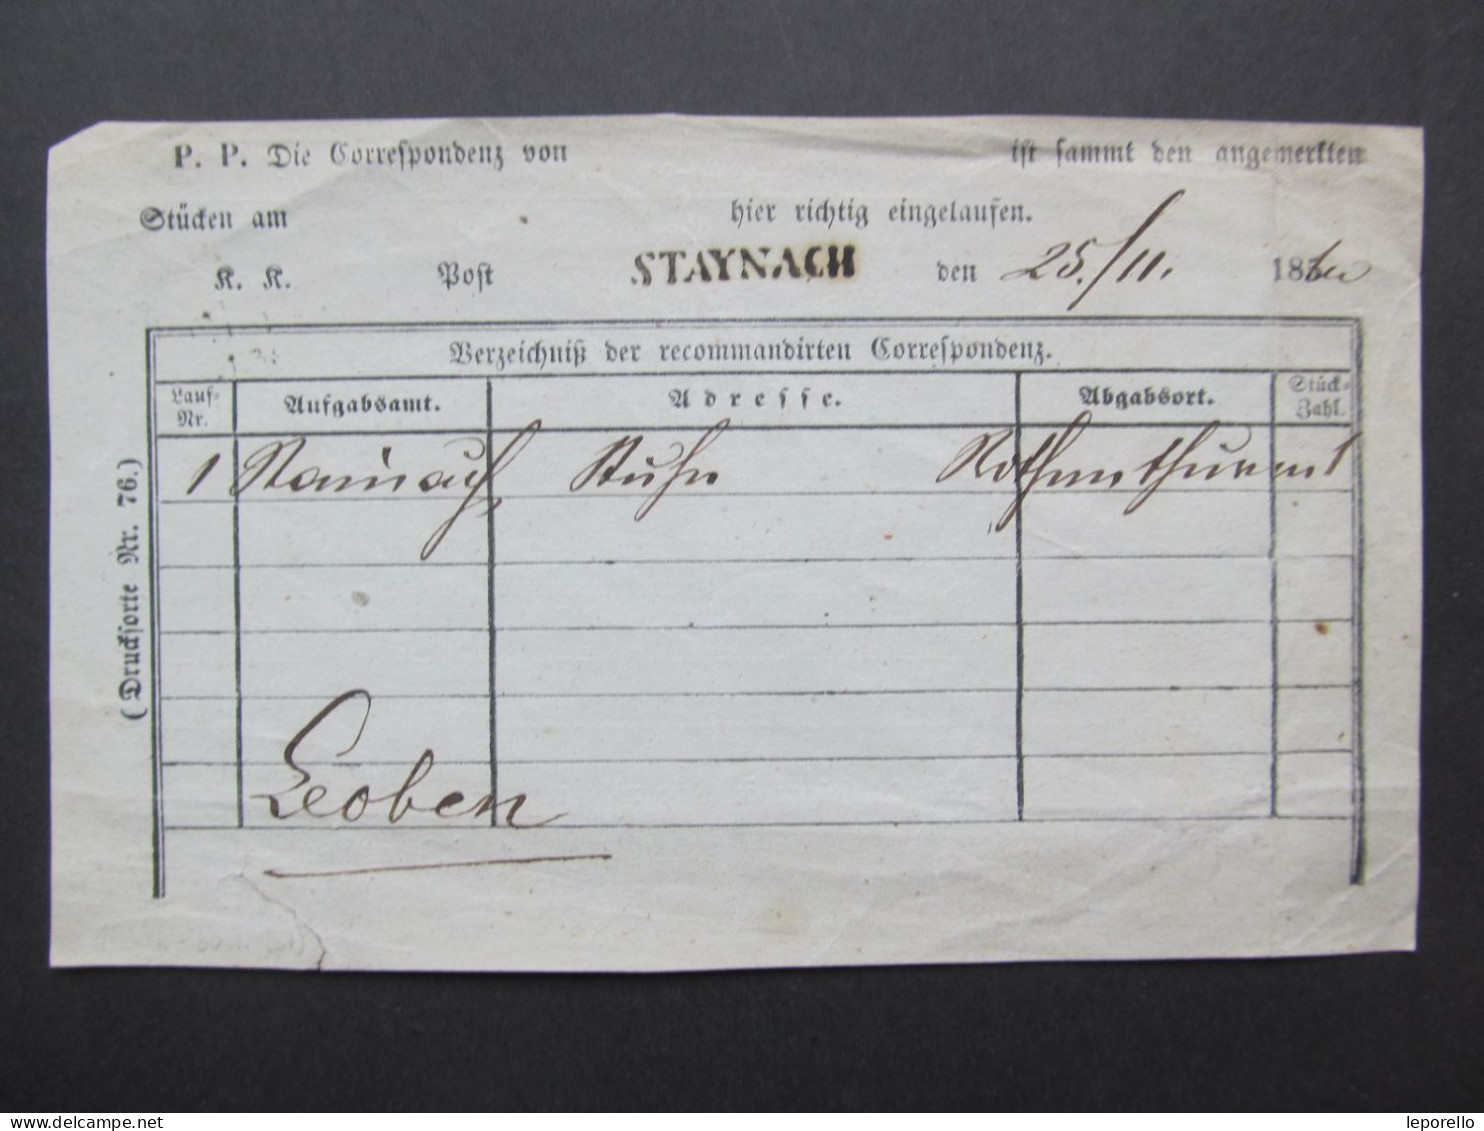 P. P. Die Correspondenz von ist sammt den angemerkten
Stücken am hier richtig eingelaufen.
K. K. Post STAYNACH den 25./11. 18
Verzeichniß der recommandirten Correspondenz.
Lauf-Nr. Aufgabsamt. Adresse. Abgabsort. Stück-Zahl.
1 Stainach Kuhn Rothenthurm 1
Leoben
(Drucksorte Nr. 76.)
www.delcampe.net
leporello